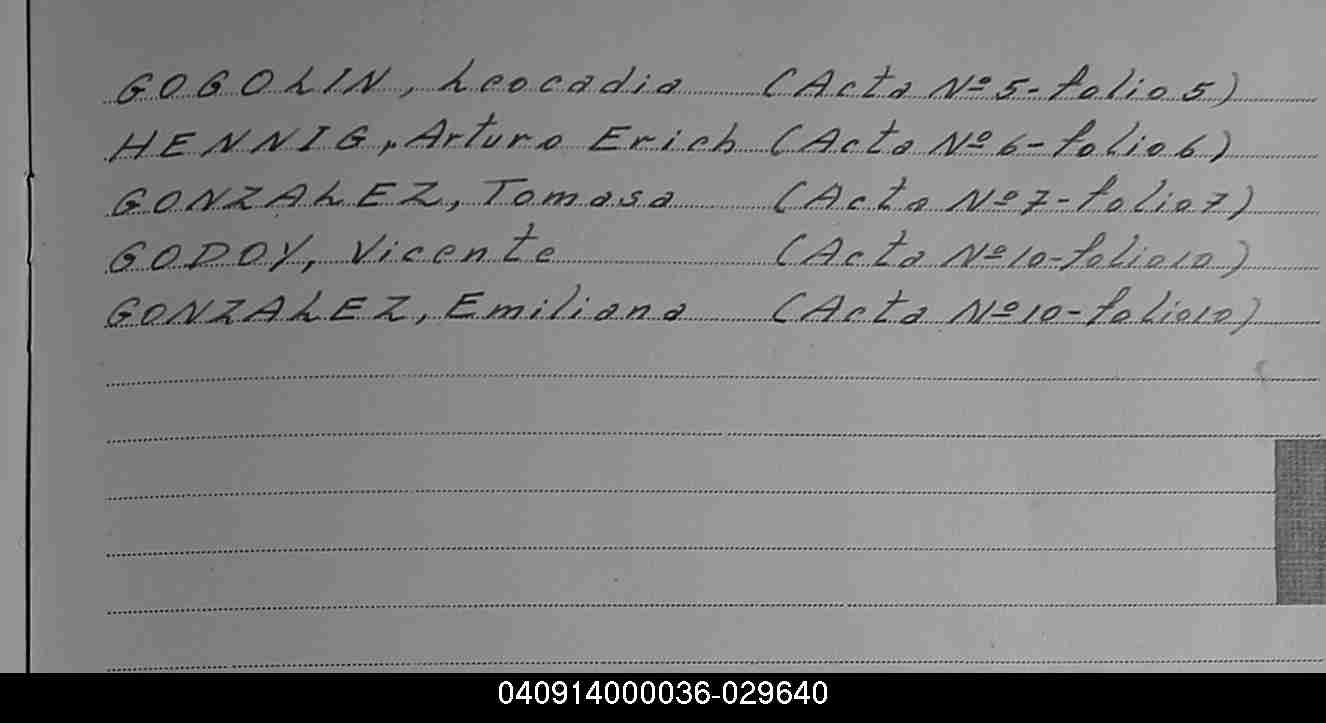 GOGOLIN, Leocadia (Acta Nº 5-folio 5)
HENNIG, Arturo Erich (Acta Nº 6-folio 6)
GONZALEZ, Tomasa (Acta Nº 7-folio 7)
GODOY, Vicente (Acta Nº 10-folio 10)
GONZALEZ, Emiliana (Acta Nº 10-folio 10)
040914000036-029640